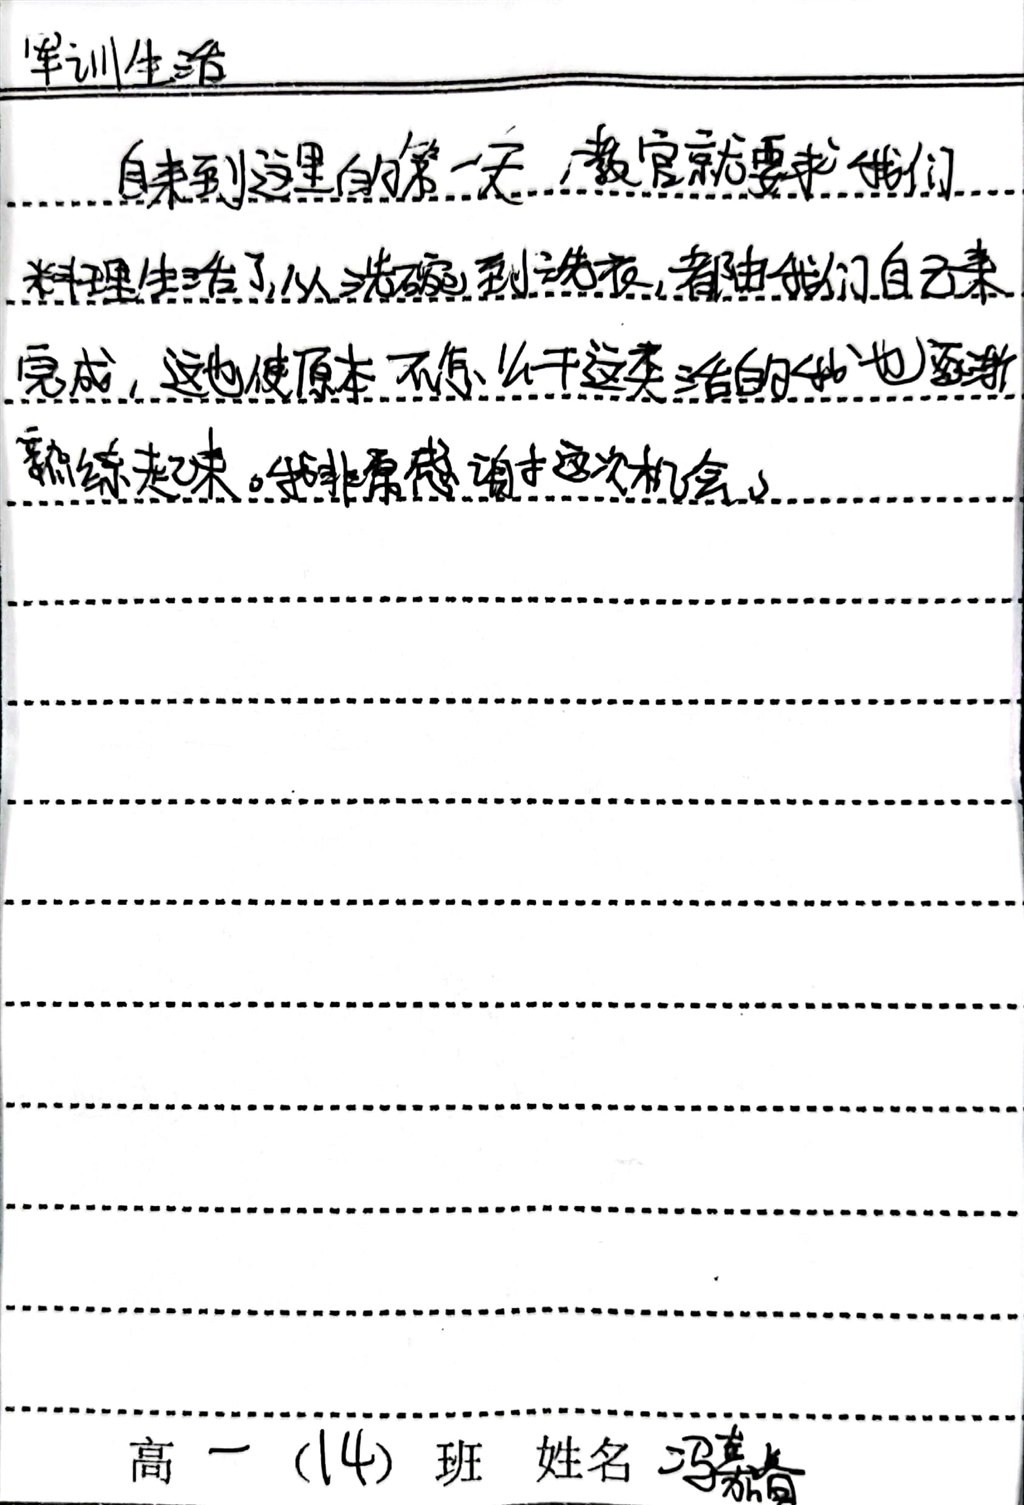 军训生活
自来到这里的第一天,教官就要求我们
料理生活了,从洗碗到洗衣,都由我们自己来
完成,这也使原本不怎么干这类活的我也逐渐
熟练起来。我非常感谢这次机会。
高一(14)班 姓名 冯嘉睿